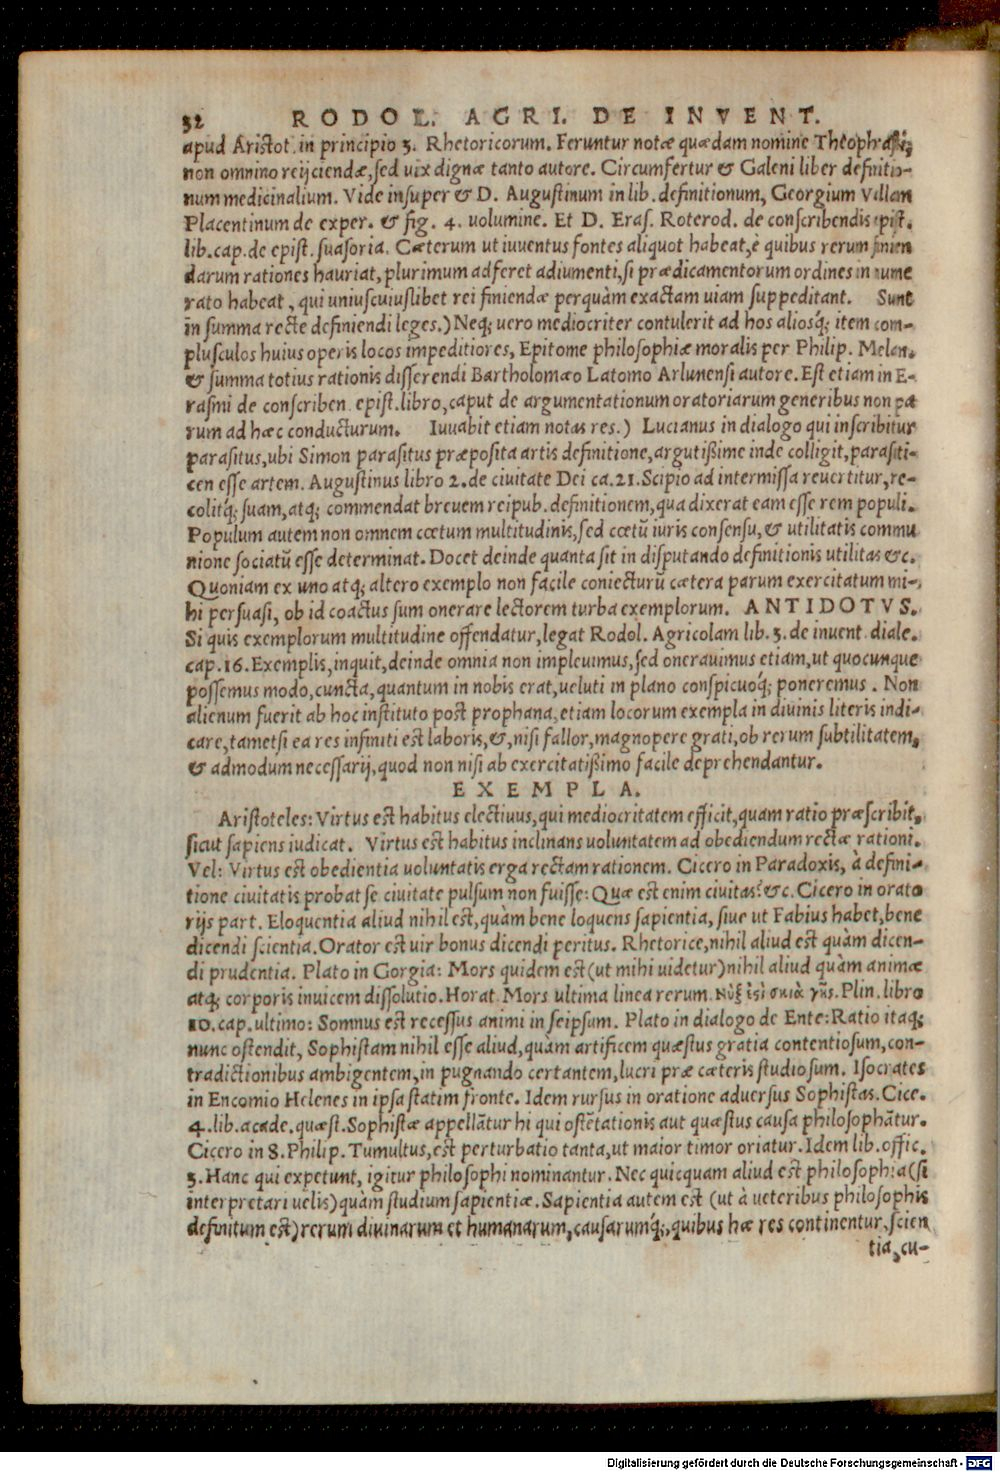 32 RODOL. AGRI. DE INVENT.
apud Aristot. in principio 3. Rhetoricorum. Feruntur notæ quædam nomine Theophrasti,
non omnino reijciendæ, sed uix dignæ tanto autore. Circumfertur & Galeni liber definitio-
num medicinalium. Vide insuper & D. Augustinum in lib. definitionum, Georgium Vallam
Placentinum de exper. & fig. 4. uolumine. Et D. Eras. Roterod. de conscribendis epist.
lib. cap. de epist. suasoria. Cæterum ut iuuentus fontes aliquot habeat, è quibus rerum finien
darum rationes hauriat, plurimum adferet adiumenti, si prædicamentorum ordines in nume
rato habeat, qui uniuscuiuslibet rei finiendæ perquàm exactam uiam suppeditant. Sunt
in summa recte definiendi leges.) Neq; uero mediocriter contulerit ad hos aliosq́; item com-
plusculos huius operis locos impeditiores, Epitome philosophiæ moralis per Philip. Melan.
& summa totius rationis disserendi Bartholomæo Latomo Arlunensi autore. Est etiam in E-
rasmi de conscriben. epist. libro, caput de argumentationum oratoriarum generibus non pa
rum ad hæc conducturum. Iuuabit etiam notas res.) Lucianus in dialogo qui inscribitur
parasitus, ubi Simon parasitus præposita artis definitione, argutißime inde colligit, parasiti-
cen esse artem. Augustinus libro 2. de ciuitate Dei ca. 21. Scipio ad intermissa reuertitur, re-
colitq́; suam, atq; commendat breuem reipub. definitionem, qua dixerat eam esse rem populi.
Populum autem non omnem cœtum multitudinis, sed cœtū iuris consensu, & utilitatis commu
nione sociatū esse determinat. Docet deinde quanta sit in disputando definitionis utilitas &c.
Quoniam ex uno atq; altero exemplo non facile coniecturū cætera parum exercitatum mi-
hi persuasi, ob id coactus sum onerare lectorem turba exemplorum. ANTIDOTVS.
Si quis exemplorum multitudine offendatur, legat Rodol. Agricolam lib. 3. de inuent. diale.
cap. 16. Exemplis, inquit, deinde omnia non impleuimus, sed onerauimus etiam, ut quocunque
possemus modo, cuncta, quantum in nobis erat, ueluti in plano conspicuoq́; poneremus. Non
alienum fuerit ab hoc instituto post prophana, etiam locorum exempla in diuinis literis indi-
care, tametsi ea res infiniti est laboris, &, nisi fallor, magnopere grati, ob rerum subtilitatem,
& admodum necessarij, quod non nisi ab exercitatißimo facile deprehendantur.
EXEMPLA.
Aristoteles: Virtus est habitus electiuus, qui mediocritatem efficit, quam ratio præscribit,
sicut sapiens iudicat. Virtus est habitus inclinans uoluntatem ad obediendum rectæ rationi.
Vel: Virtus est obedientia uoluntatis erga rectam rationem. Cicero in Paradoxis, à defini-
tione ciuitatis probat se ciuitate pulsum non fuisse: Quæ est enim ciuitas? &c. Cicero in orato
rijs part. Eloquentia aliud nihil est, quàm bene loquens sapientia, siue ut Fabius habet, bene
dicendi scientia. Orator est uir bonus dicendi peritus. Rhetorice, nihil aliud est quàm dicen-
di prudentia. Plato in Gorgia: Mors quidem est (ut mihi uidetur) nihil aliud quàm animæ
atq; corporis inuicem dissolutio. Horat. Mors ultima linea rerum. νύξ ἐςὶ σκιὰ γῆς. Plin. libro
10. cap. ultimo: Somnus est recessus animi in seipsum. Plato in dialogo de Ente: Ratio itaq;
nunc ostendit, Sophistam nihil esse aliud, quàm artificem quæstus gratia contentiosum, con-
tradictionibus ambigentem, in pugnando certantem, lucri præ cæteris studiosum. Isocrates
in Encomio Helenes in ipsa statim fronte. Idem rursus in oratione aduersus Sophistas. Cice.
4. lib. acade. quæst. Sophistæ appellātur hi qui ostētationis aut quæstus causa philosophātur.
Cicero in 8. Philip. Tumultus, est perturbatio tanta, ut maior timor oriatur. Idem lib. offic.
3. Hanc qui expetunt, igitur philosophi nominantur. Nec quicquam aliud est philosophia (si
interpretari uelis) quàm studium sapientiæ. Sapientia autem est (ut à ueteribus philosophis
definitum est) rerum diuinarum et humanarum, causarumq́;, quibus hæ res continentur, scien
tia, cu-
Digitalisierung gefördert durch die Deutsche Forschungsgemeinschaft - DFG